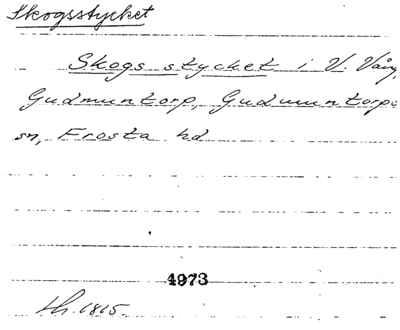 Skogsstycket
Skogs stycket i V. Väng,
Gudmuntorp, Gudmuntorps
sn, Frosta hd
4973
th. 1815.